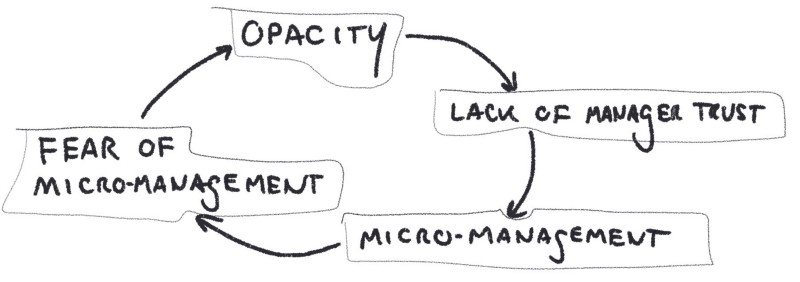 OPACITY
LACK OF MANAGER TRUST
MICRO-MANAGEMENT
FEAR OF
MICRO-MANAGEMENT